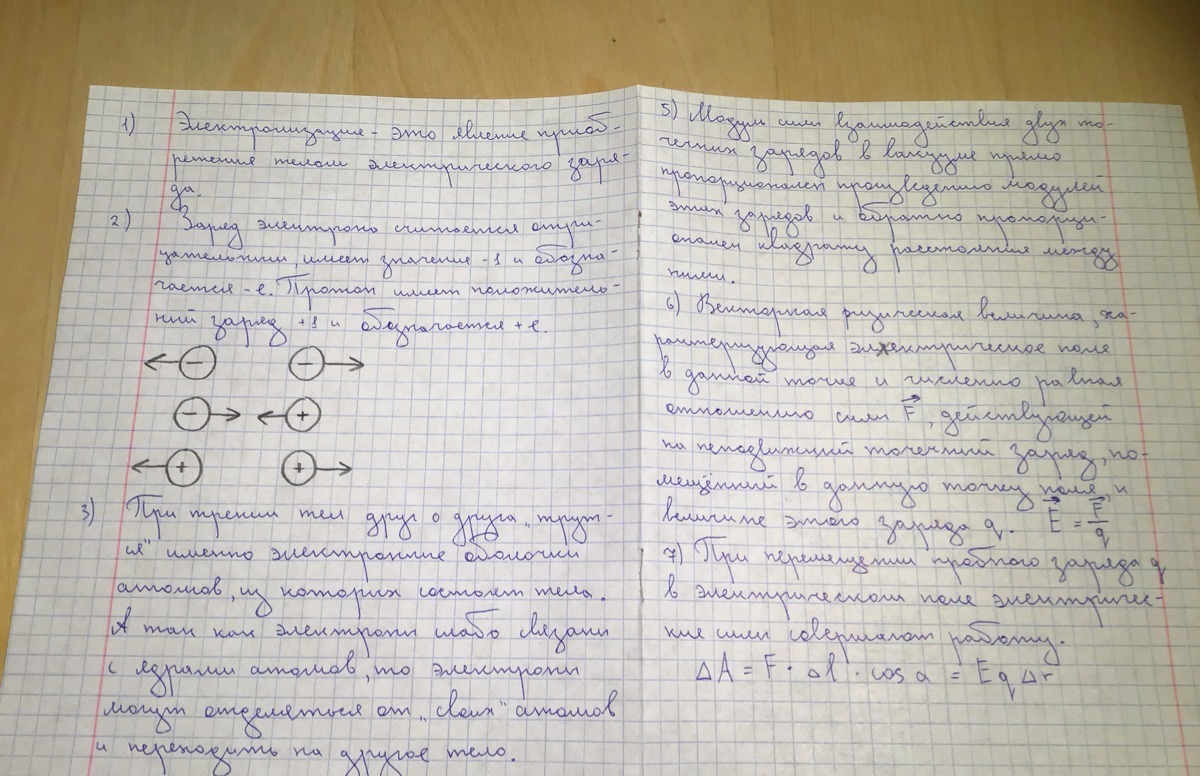 1) Электронизация - это явление приоб-
ретения телом электрического заря-
да.
2) Заряд электрона считается отри-
цательным имеет значение -1 и обозна-
чается -e. Протон имеет положитель-
ный заряд +1 и обозначается +e.
- -
- +
+ +
3) При трении тел друг о друга „трут-
ся" именно электронные оболочки
атомов, из которых состоят тела.
А так как электроны слабо связаны
с ядрами атомов, то электроны
могут отделяться от „своих" атомов
и переходить на другое тело.
5) Модули силы взаимодействия двух то-
чечных зарядов в вакууме прямо
пропорционален произведению модулей
этих зарядов и обратно пропорци-
онален квадрату расстояния между
ними.
6) Векторная физическая величина, ха-
рактеризующая электрическое поле
в данной точке и численно равная
отношению силы F⃗, действующей
на неподвижный точечный заряд, по-
мещённый в данную точку поля, к
величине этого заряда q. E⃗ = F⃗/q
7) При перемещении пробного заряда q
в электрическом поле электричес-
кие силы совершают работу.
ΔA = F · Δl · cos a = Eq Δr